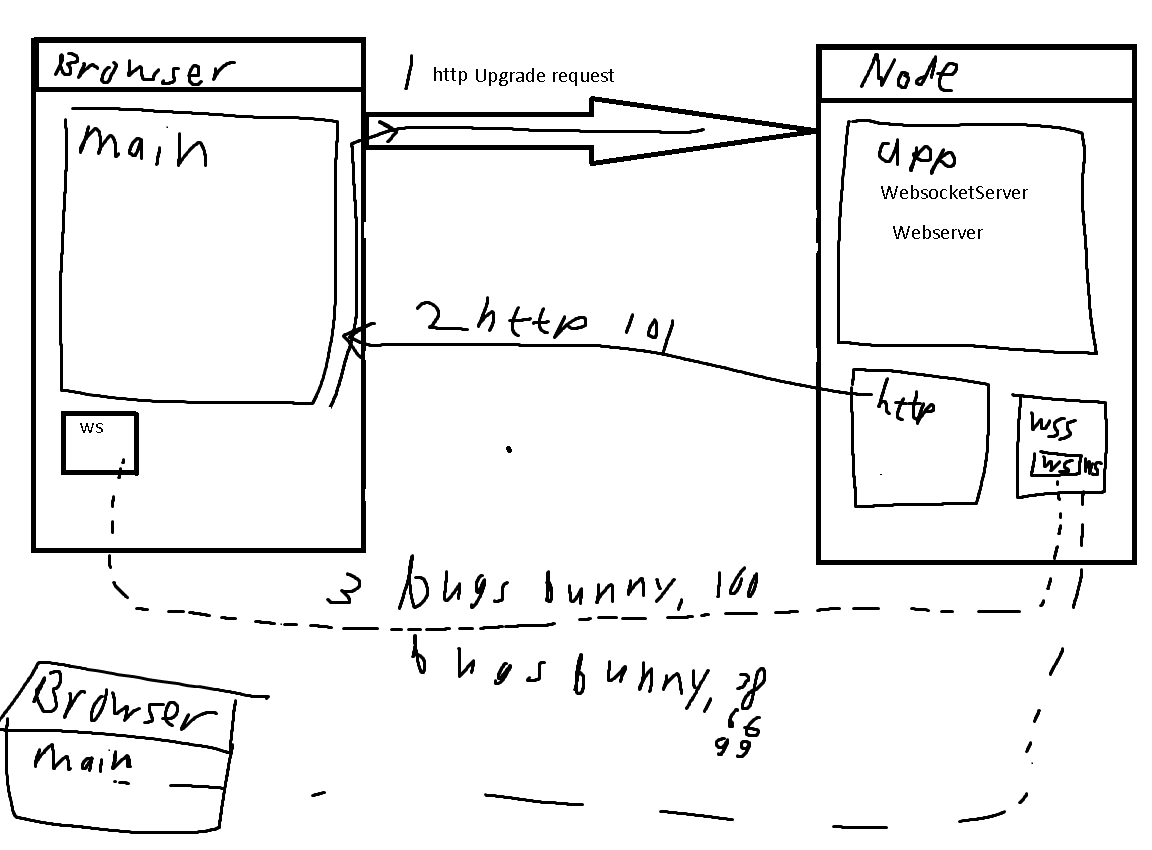 Browser
1 http Upgrade request
Node
main
app
WebsocketServer
Webserver
2 http 101
http
wss
ws ws
ws
3 bugs bunny, 100
bugs bunny,
66
99
Browser
main